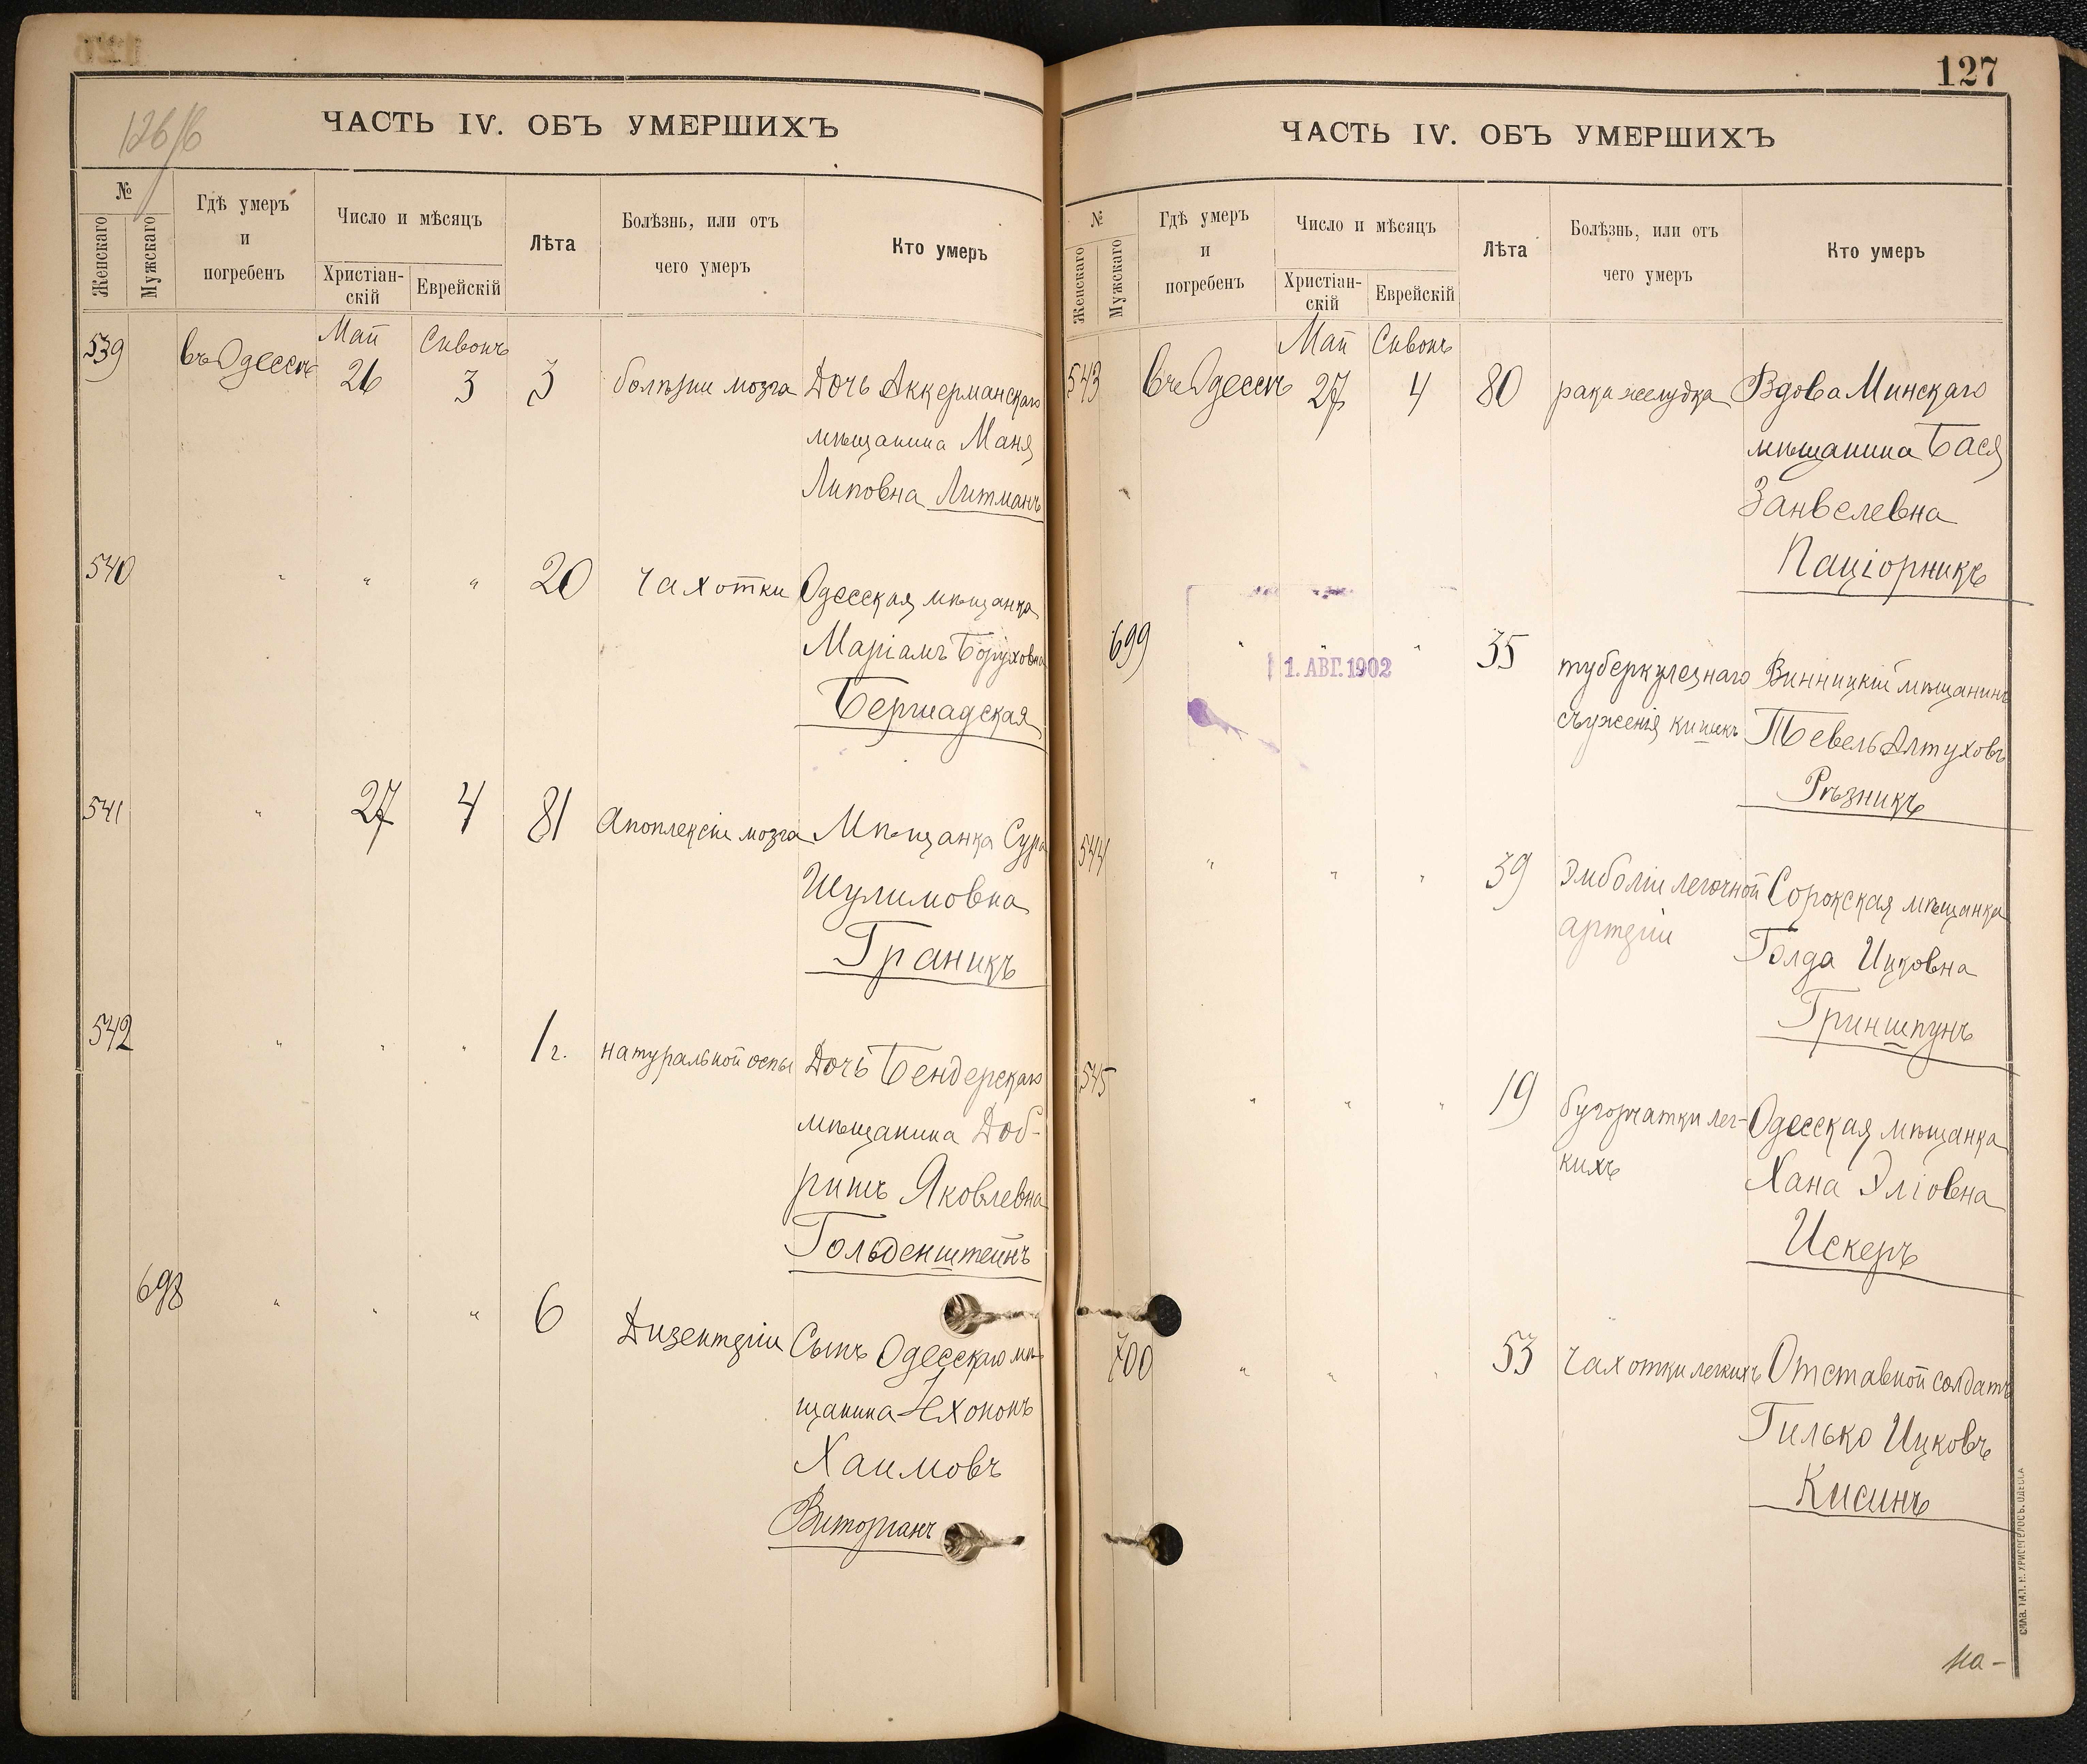 126/б
ЧАСТЬ IV. ОБЪ УМЕРШИХЪ
№
Женскаго
Мужскаго
Гдѣ умеръ
и
погребенъ
Число и мѣсяцъ
Христіан-
скій
Еврейскій
Лѣта
Болѣзнь, или отъ
чего умеръ
Кто умеръ
Май Сивонъ
539 въ Одессѣ 26 3 3 болѣзни мозга Дочь Аккерманскаго
мѣщанина Маня
Липовна Литманъ
540 " " " 20 Чахотки Одесская мѣщанка
Маріамъ Боруховна
Бершадская
541 " 27 4 81 Апоплексіи мозга Мѣщанка Сура
Шулимовна
Граникъ
542 " " " 1 г. натуральной оспы Дочь Бендерскаго
мѣщанина Доб-
ришъ Яковлевна
Гольденштейнъ
698 " " " 6 Дизентеріи Сынъ Одесскаго мѣ-
щанина Ехононъ
Хаимовъ
127
ЧАСТЬ IV. ОБЪ УМЕРШИХЪ
№
Женскаго
Мужскаго
Гдѣ умеръ
и
погребенъ
Число и мѣсяцъ
Христіан-
скій
Еврейскій
Лѣта
Болѣзнь, или отъ
чего умеръ
Кто умеръ
Май Сивонъ
543 въ Одессѣ 27 4 80 рака желудка Вдова Минскаго
мѣщанина Бася
Занвелевна
Паціорникъ
699 " " " 35 туберкулезнаго Винницкій мѣщанинъ
съуженія кишекъ Тевель Алтуховъ
Рѣзникъ
1. АВГ. 1902
544 " " " 39 Эмболіи легочной Сорокская мѣщанка
артеріи Голда Ицковна
Гриншпунъ
545 " " " 19 бугорчатки лег- Одесская мѣщанка
кихъ Хана Эліовна
Искеръ
700 " " " 53 Чахотки легкихъ Отставной солдатъ
Гилько Ицковъ
Кисинъ
на-